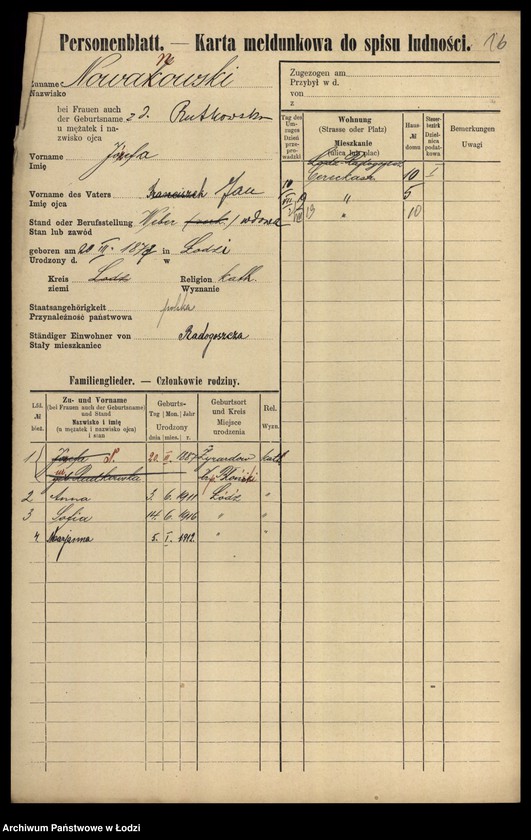 Personenblatt. — Karta meldunkowa do spisu ludności. 16
Zuname
Nazwisko
Nowakowski
bei Frauen auch
der Geburtsname
u mężatek i na-
zwisko ojca
z d. Rutkowska
Vorname
Imię
Józefa
Vorname des Vaters
Imię ojca
Franciszek Jan
Stand oder Berufsstellung
Stan lub zawód
Weber / wdowa
geboren am 20 III. 1879 in Łodzi
Urodzony d. w
Kreis
ziemi
Lodz
Religion
Wyznanie
kath.
Staatsangehörigkeit
Przynależność państwowa
polska
Ständiger Einwohner von
Stały mieszkaniec
Radogoszcza
Zugezogen am
Przybył w d.
von
z
Tag des
Um-
zuges
Dzień
prze-
prowadzki
Wohnung
(Strasse oder Platz)
Mieszkanie
(ulica lub plac)
Haus-
№
domu
Steuer-
bezirk
Dzielnica
podat-
kowa
Bemerkungen
Uwagi
10 I
" 5
19 " 10
Familienglieder. — Członkowie rodziny.
Lfd.
№
bież.
Zu- und Vorname
(bei Frauen auch der Geburtsname)
und Stand
Nazwisko i imię
(u mężatek i nazwisko ojca)
i stan
Geburts-
Tag | Mon. | Jahr
Urodzony
dnia | mies. | r.
Geburtsort
und Kreis
Miejsce
urodzenia
Rel.
Wyzn.
1 Józefa 20. II. 1887 Żyrardów kath
geb. Rutkowska Błoński
2 Anna 3. 6. 1911 Łódź "
3 Sofia 14. 6. 1916 " "
4. Marjanna 5. I. 1912. " "
Archiwum Państwowe w Łodzi